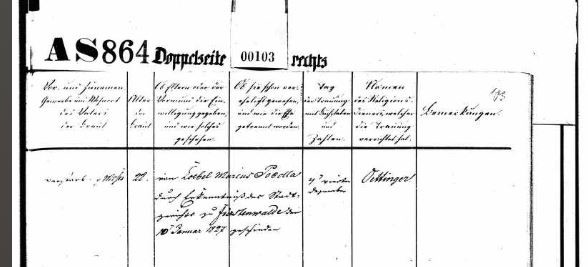 AS 864 Doppelseite 00103 rechts
193
Vor- und Zunamen
Gewerbe und Wohnort
des Vaters
der Braut
Alter
der
Braut
Ob Eltern oder der
Vormund die Ein-
willigung gegeben,
und wie solches
geschehen.
Ob sie schon ver-
ehelicht gewesen,
und wie diese Ehe
getrennt worden.
Tag
der Trauung
mit Buchstaben
und
Zahlen.
Namen
des Religions-
dieners, welcher
die Trauung
verrichtet hat.
Bemerkungen.
22.
von Loebel Marcus
durch Erkenntniß des Stadt-
gerichts zu Fürstenwalde den
10 Januar 1827 geschieden
vierten
Dezember
Oettinger